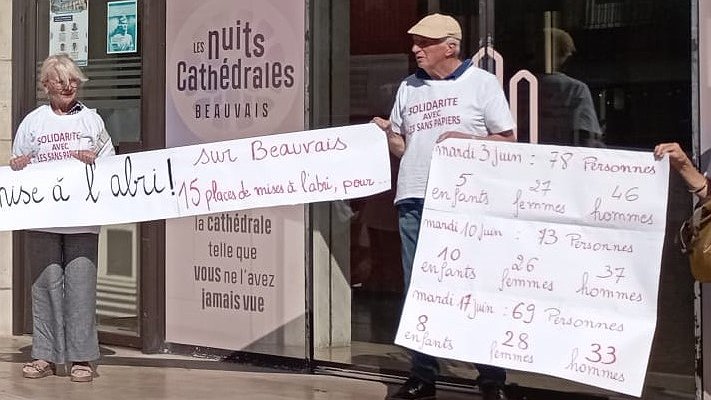 LES
nuits
Cathédrales
BEAUVAIS
SOLIDARITE
AVEC
LES SANS PAPIERS
mise à l'abri!
sur Beauvais
15 places de mises à l'abri, pour...
la cathédrale
telle que
vous ne l'avez
jamais vue
SOLIDARITÉ
AVEC
LES SANS PAPIERS
mardi 3 juin : 78 Personnes
5 27 46
enfants femmes hommes
mardi 10 juin : 73 Personnes
10 26 37
enfants femmes hommes
mardi 17 juin : 69 Personnes
8 28 33
enfants femmes hommes